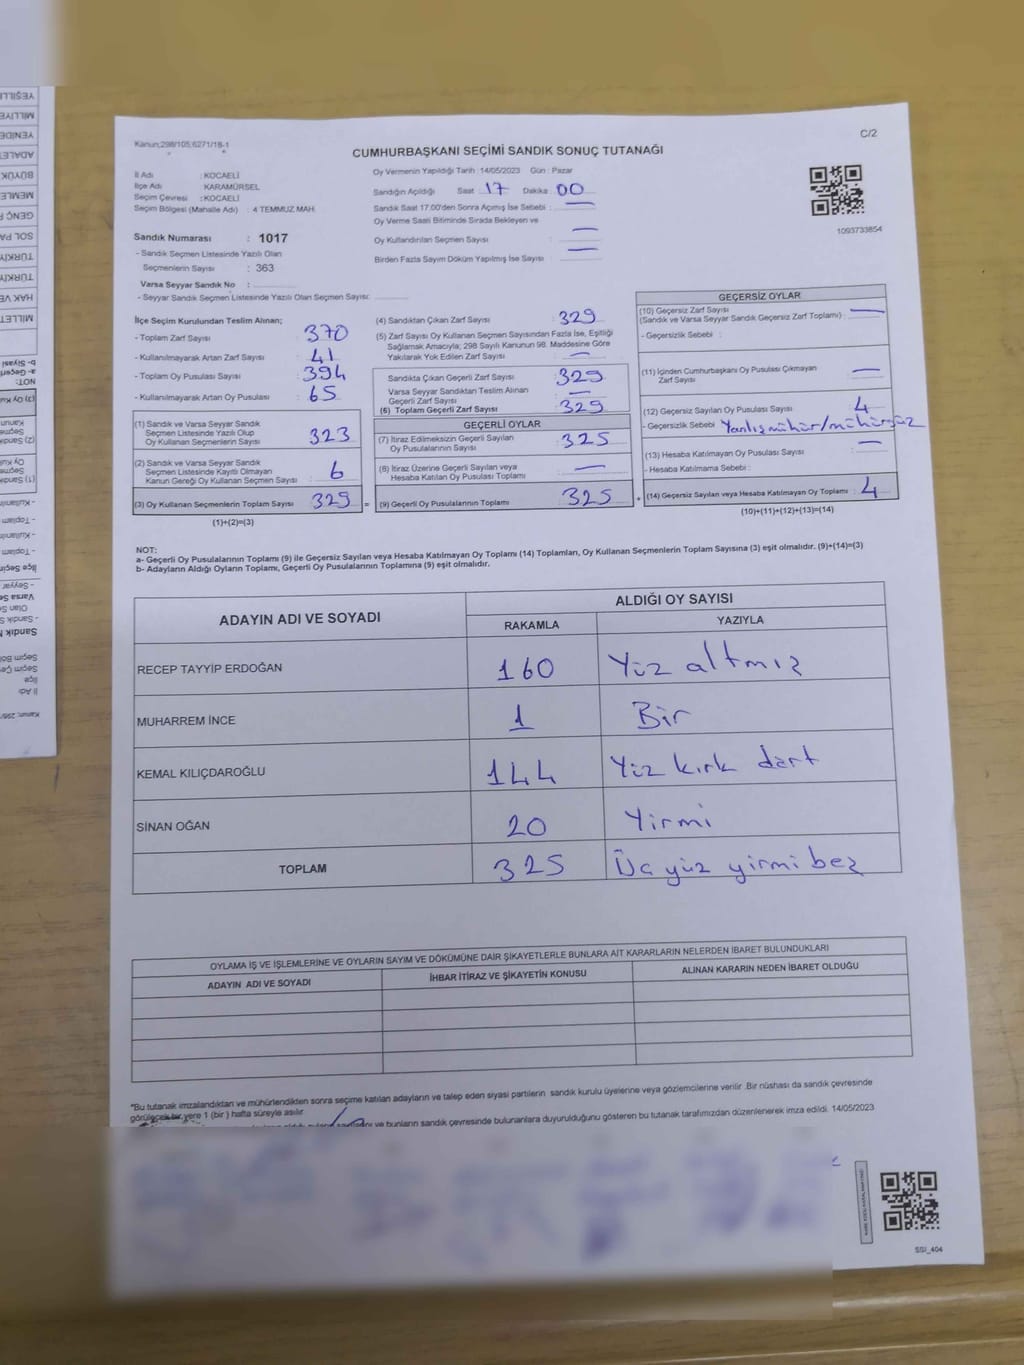 Kanun;298/105;6271/18-1
C/2
CUMHURBAŞKANI SEÇİMİ SANDIK SONUÇ TUTANAĞI
İl Adı : KOCAELİ
İlçe Adı KARAMÜRSEL
Seçim Çevresi : KOCAELİ
Seçim Bölgesi (Mahalle Adı) : 4 TEMMUZ MAH.
Oy Vermenin Yapıldığı Tarih :14/05/2023 Gün : Pazar
Sandığın Açıldığı Saat :17 Dakika :00
Sandık Saat 17:00'den Sonra Açımış İse Sebebi : —
Oy Verme Saati Bitiminde Sırada Bekleyen ve
Oy Kullandırılan Seçmen Sayısı —
Birden Fazla Sayım Döküm Yapılmış İse Sayısı : —
1093733854
Sandık Numarası : 1017
- Sandık Seçmen Listesinde Yazılı Olan
Seçmenlerin Sayısı : 363
Varsa Seyyar Sandık No :
- Seyyar Sandık Seçmen Listesinde Yazılı Olan Seçmen Sayısı:
İlçe Seçim Kurulundan Teslim Alınan;
-Toplam Zarf Sayısı : 370
-Kullanılmayarak Artan Zarf Sayısı : 41
- Toplam Oy Pusulası Sayısı : 394
- Kullanılmayarak Artan Oy Pusulası : 65
(1) Sandık ve Varsa Seyyar Sandık
Seçmen Listesinde Yazılı Olup
Oy Kullanan Seçmenlerin Sayısı : 323
(2) Sandık ve Varsa Seyyar Sandık
Seçmen Listesinde Kayıtlı Olmayan
Kanun Gereği Oy Kullanan Seçmen Sayısı : 6
(3) Oy Kullanan Seçmenlerin Toplam Sayısı : 329 =
(1)+(2)=(3)
(4) Sandıktan Çıkan Zarf Sayısı : 329
(5) Zarf Sayısı Oy Kullanan Seçmen Sayısından Fazla İse, Eşitliği
Sağlamak Amacıyla; 298 Sayılı Kanunun 98. Maddesine Göre
Yakılarak Yok Edilen Zarf Sayısı : —
Sandıkta Çıkan Geçerli Zarf Sayısı : 329
Varsa Seyyar Sandıktan Teslim Alınan
Geçerli Zarf Sayısı : —
(6) Toplam Geçerli Zarf Sayısı : 329
GEÇERLİ OYLAR
(7) İtiraz Edilmeksizin Geçerli Sayılan
Oy Pusulası Sayısı : 325
(8) İtiraz Üzerine Geçerli Sayılan veya
Hesaba Katılan Oy Pusulası Toplamı : —
(9) Geçerli Oy Pusulalarının Toplamı : 325 +
GEÇERSİZ OYLAR
(10) Geçersiz Zarf Sayısı
(Sandık ve Varsa Seyyar Sandık Geçersiz Zarf Toplamı) : —
- Geçersizlik Sebebi :
(11) İçinden Cumhurbaşkanı Oy Pusulası Çıkmayan
Zarf Sayısı : —
(12) Geçersiz Sayılan Oy Pusulası Sayısı : 4
- Geçersizlik Sebebi : Yanlış mühür/mühürsüz
(13) Hesaba Katılmayan Oy Pusulası Sayısı : —
- Hesaba Katılmama Sebebi :
(14) Geçersiz Sayılan veya Hesaba Katılmayan Oy Toplamı : 4
(10)+(11)+(12)+(13)=(14)
NOT:
a- Geçerli Oy Pusulalarının Toplamı (9) ile Geçersiz Sayılan veya Hesaba Katılmayan Oy Toplamı (14) Toplamları, Oy Kullanan Seçmenlerin Toplam Sayısına (3) eşit olmalıdır. (9)+(14)=(3)
b- Adayların Aldığı Oyların Toplamı, Geçerli Oy Pusulalarının Toplamına (9) eşit olmalıdır.
ADAYIN ADI VE SOYADI ALDIĞI OY SAYISI
RAKAMLA YAZIYLA
RECEP TAYYİP ERDOĞAN 160 Yüz altmış
MUHARREM İNCE 1 Bir
KEMAL KILIÇDAROĞLU 144 Yüz kırk dört
SİNAN OĞAN 20 Yirmi
TOPLAM 325 Üç yüz yirmi beş
OYLAMA İŞ VE İŞLEMLERİNE VE OYLARIN SAYIM VE DÖKÜMÜNE DAİR ŞİKAYETLERLE BUNLARA AİT KARARLARIN NELERDEN İBARET BULUNDUKLARI
ADAYIN ADI VE SOYADI İHBAR İTİRAZ VE ŞİKAYETİN KONUSU ALINAN KARARIN NEDEN İBARET OLDUĞU
*Bu tutanak imzalandıktan ve mühürlendikten sonra seçime katılan adayların ve talep eden siyasi partilerin sandık kurulu üyelerine veya gözlemcilerine verilir .Bir nüshası da sandık çevresinde
görülecek bir yere 1 (bir ) hafta süreyle asılır.
ve bunların sandık çevresinde bulunanlara duyurulduğunu gösteren bu tutanak tarafımızdan düzenlenerek imza edildi. 14/05/2023
SGİ_404